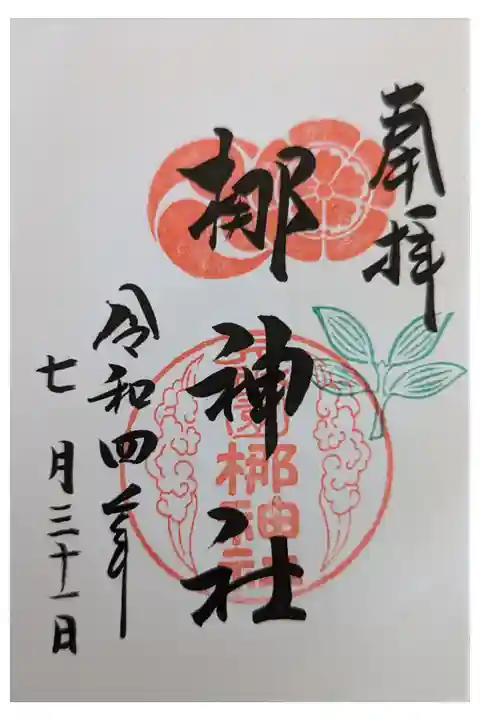 奉拝
梛神社
元祇園
梛神社
令和四年
七月三十一日